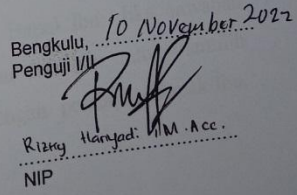 Bengkulu, 10 November 2022
Penguji I/II
Rizky Hariyadi. M.Acc.
NIP